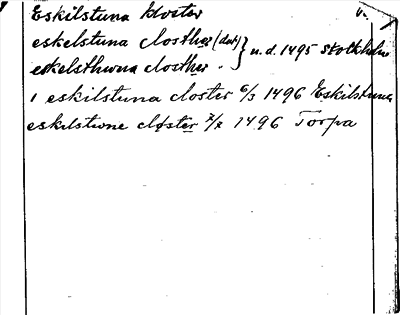 Eskilstuna kloster
eskelstuna closther (dat) } u. d. 1495 Stockholm
eskelsthwna closther.
i eskilstuna closter 6/3 1496 Eskilstuna
eskilstwne closter 7/7 1496 Torpa